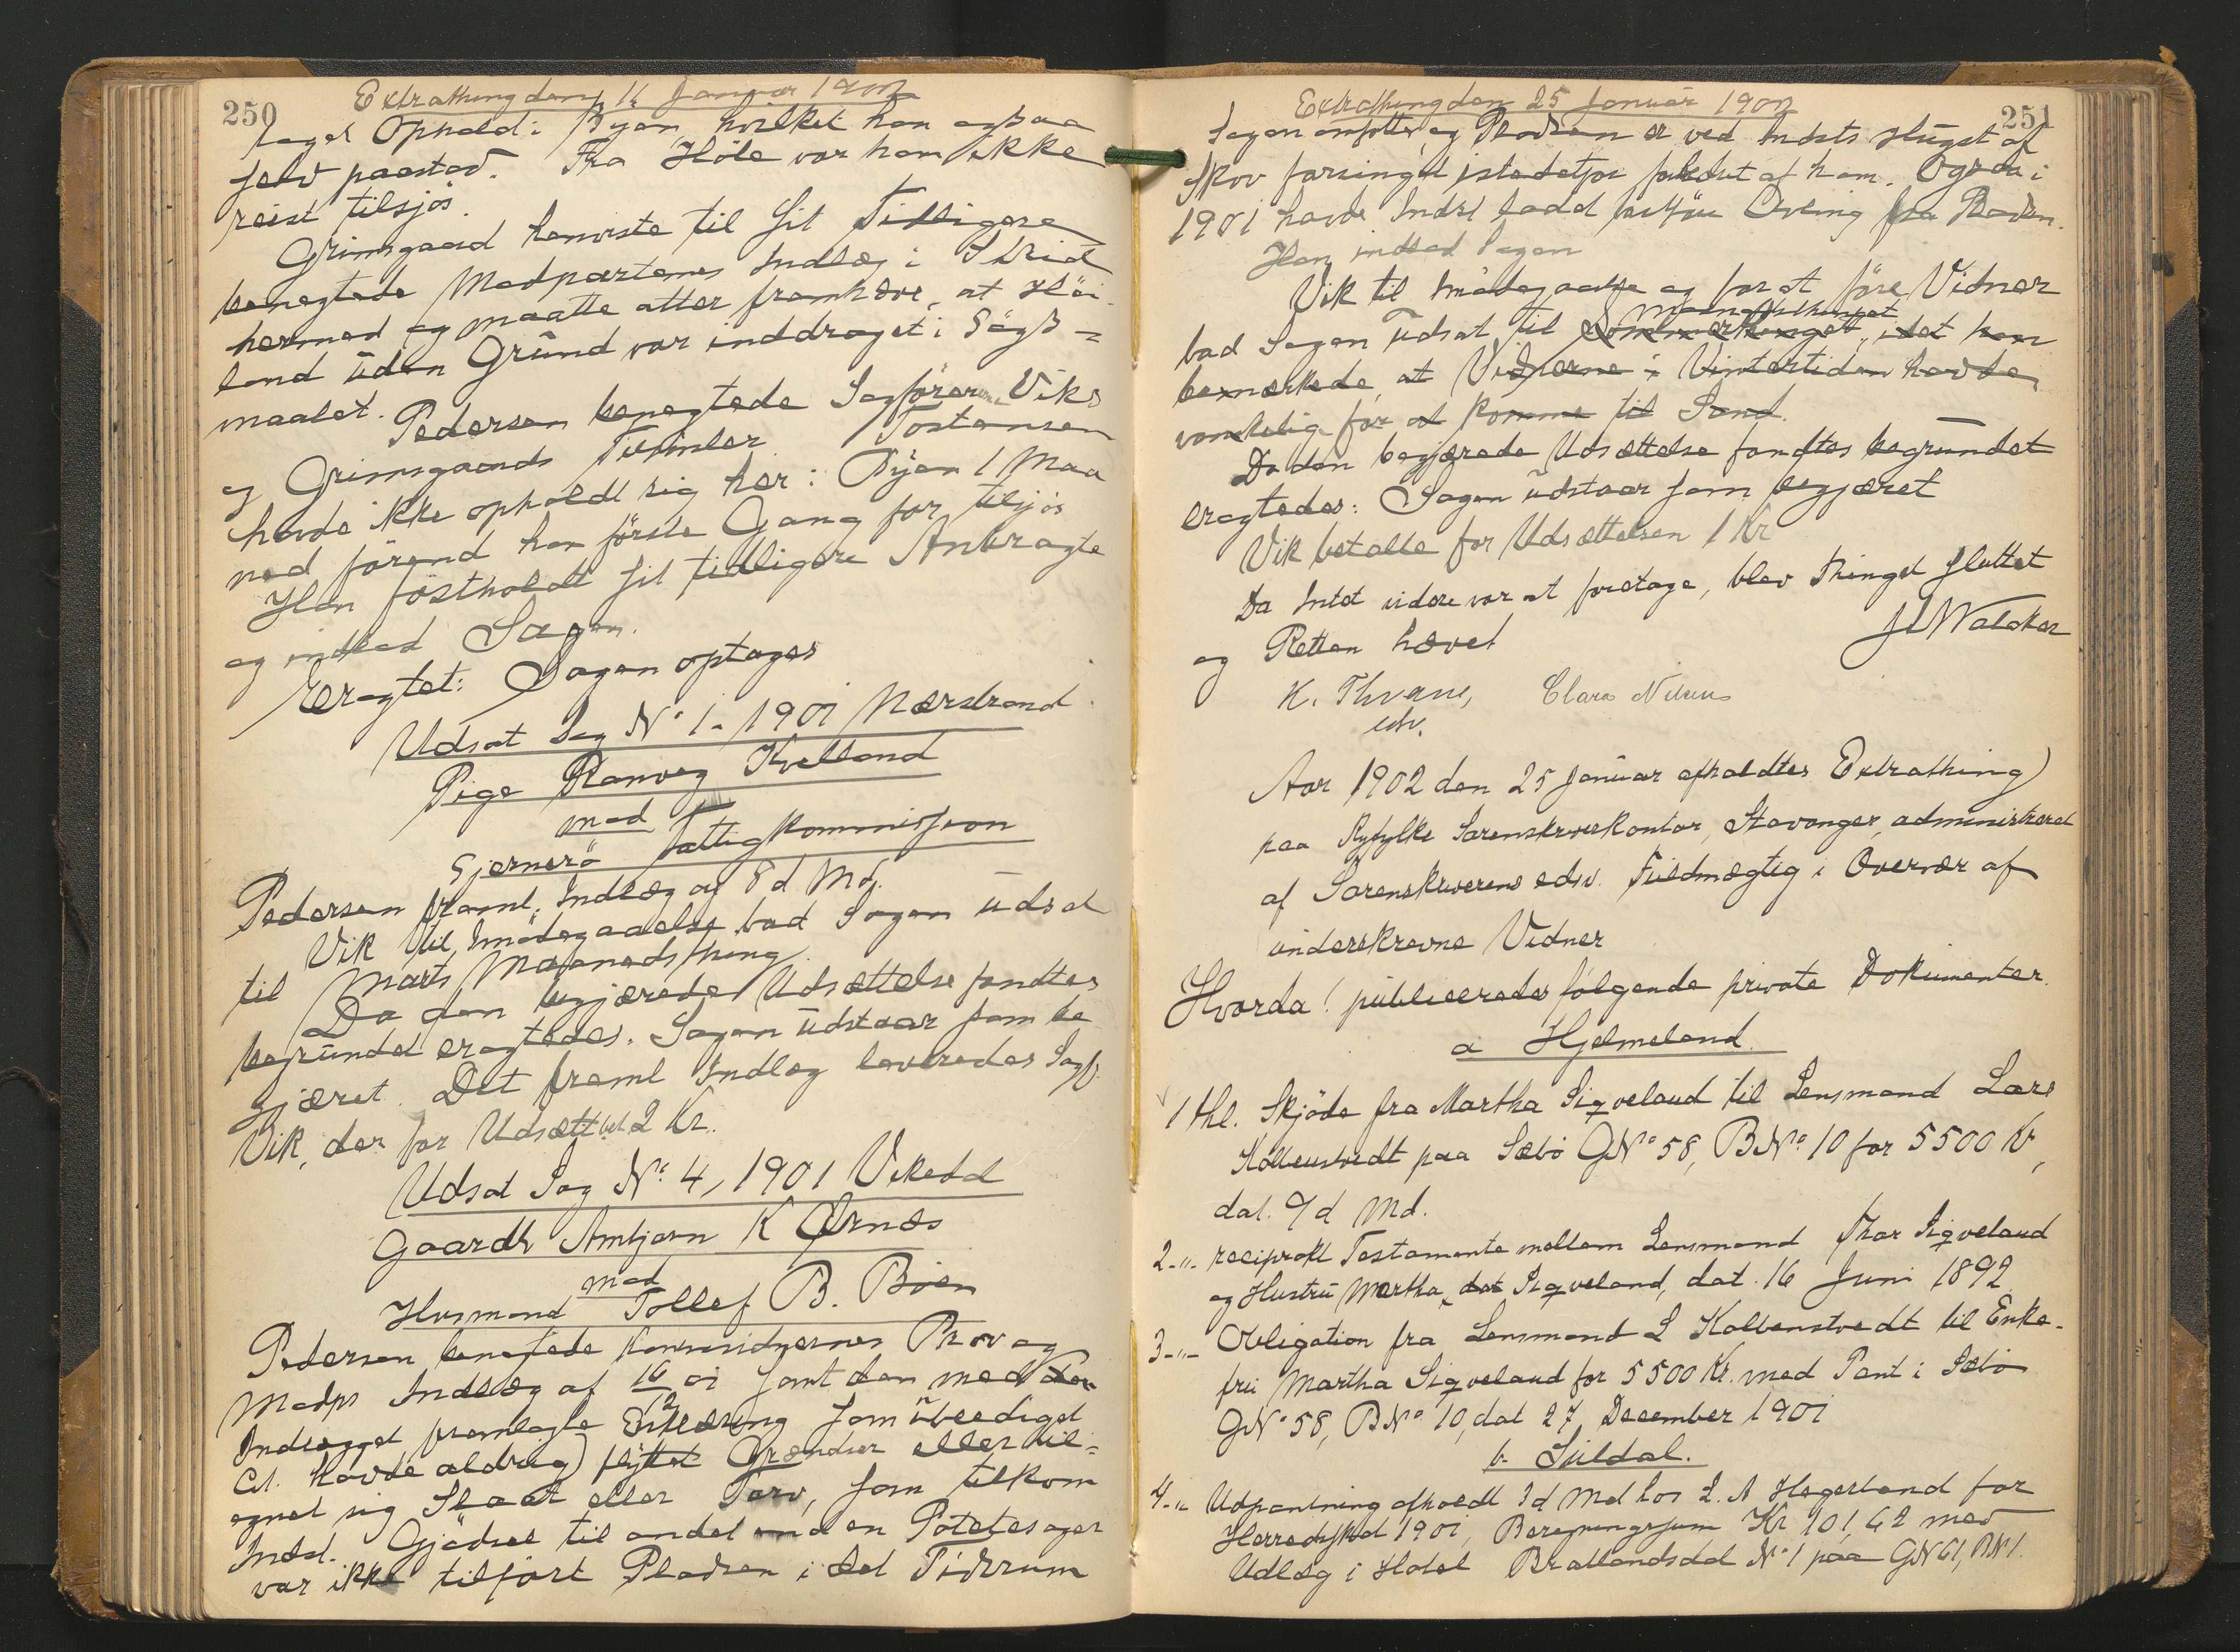 250
Extrathing den 16 Januar 1902
taget Ophold i Byen, hvilket han ogsaa
selv paastod. Fra Höle var han ikke
reist tilsjös.
Grimsgaard henviste til sit Tidligere
benegtede Modpartens Indlæg i Strid
hermed og maatte atter fremhæve, at Höi-
land uden Grund var inddraget i Sögs-
maalet.
Pedersen benegtede Sagförerne Viks
og Grimsgaards Tostensen
havde ikke opholdt sig her i Byen 1 Maa
ned förend han förste Gang for tilsjös
Han fastholdt sit tidligere Anbragte
og indlod Sagen.
Eragtet: Sagen optages
Udsat Sag No 1 - 1901 Nærstrand
Pige Ranveg Kvelland
mod
Sjernerö Fattigkommission
Pedersen freml. Indlæg af 8 d Md.
Vik til Imödegaaelse bad Sagen udsat
til Marts Maanedsthing.
Da den begjærede Udsættelse fandtes
begrundet eragtedes. Sagen udstaar som be
gjæret. Det freml Indlæg leveredes Sagf.
Vik, der for Udsætt bet 2 Kr.
Udsat Sag No 4, 1901 Vikedal
Gaardbr Ambjørn K Ørnes
mod
Husmand Tollef B. Böen
Pedersen benegtede Prov og
Modps Indlæg af 16/12 01 samt den med
Indlægget fremlagte Erklæring som ubeediget
Cit. havde aldrig flyttet Grændser eller til-
egnet sig Slaat eller Torv, som tilkom
Indst. Gjödsel til andet end en Potetesager
var ikke tilfört Pladsen i det Tidsrum
251
Extrathing den 25 Januar 1902
Sagen omfatter, og Pladsen er ved Indsts Hugst af
Skov forringet istedetfor forbedret af ham. Ogsaa i
1901 havde Indst ladd Avling fra Pladsen.
Han indlod Sagen
Vik til Imödegaaelse og for at före Vidner
bad Sagen udsat til Sommerthinget, idet han
Maanedsthinget
bemærkede, at Vidnerne i Vintertiden havde
vanskelig for at komme til Sand.
Da den begjærede Udsættelse fandtes begrundet
eragtedes: Sagen udstaar som begjæret
Vik betalte for Udsættelsen 1 Kr
Da Intet videre var at foretage, blev Thinget sluttet
og Retten hævet
K. Thrane, Clara Nilsen
edv.
Aar 1902 den 25 Januar afholdtes Extrathing
paa Ryfylke Sorenskriverkontor, Stavanger, administreret
af Sorenskriverens edsv. Fuldmægtig i Overvær af
underskrevne Vidner
Hvorda! publiceredes følgende private Dokumenter.
a Hjelmeland
1 thl. Skjöde fra Martha Sigveland til Lensmand Lars
Kolbenstvedt paa Sæbö GNo 58, BNo 10 for 5500 Kr,
dat. 9/d Md.
2-"- reciprokt Testamente mellem Lensmand Thor Sigveland
og Hustru Martha, dat Sigveland, dat. 16 Juni 1892
3-"- Obligation fra Lensmand L Kolbenstvedt til Enke-
fru Martha Sigveland for 5500 Kr. med Pant i Sæbö
GNo 58, BNo 10, dat 27 December 1901
b. Suldal.
4-"- Udpantning afholdt 3 d Md hos L. A Hegerland for
Herredsskat 1901, Beregningssum Kr 101,62 med
Udlæg i Hotel Bratlandsdal No 1 paa GN 61, BN 1.